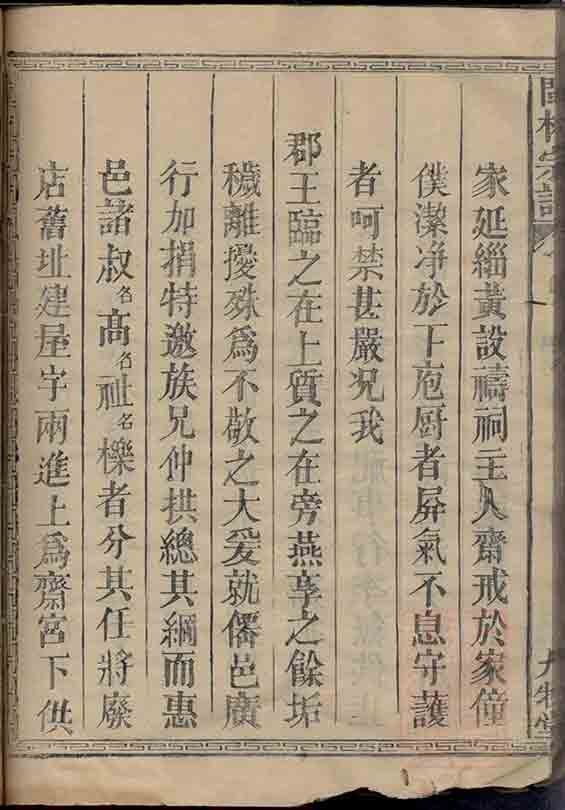 家延緇黃設禱祠主人齋戒於家僮
僕潔净於下庖厨者屏氣不息守護
者呵禁甚嚴况我
郡王臨之在上質之在旁燕享之餘垢
穢離擾殊爲不敬之大爰就僊邑廣
行加捐特邀族兄仲拱總其綱而惠
邑諸叔名高名祉名櫟者分其任將廢
店舊址建屋宇兩進上爲齋宮下供